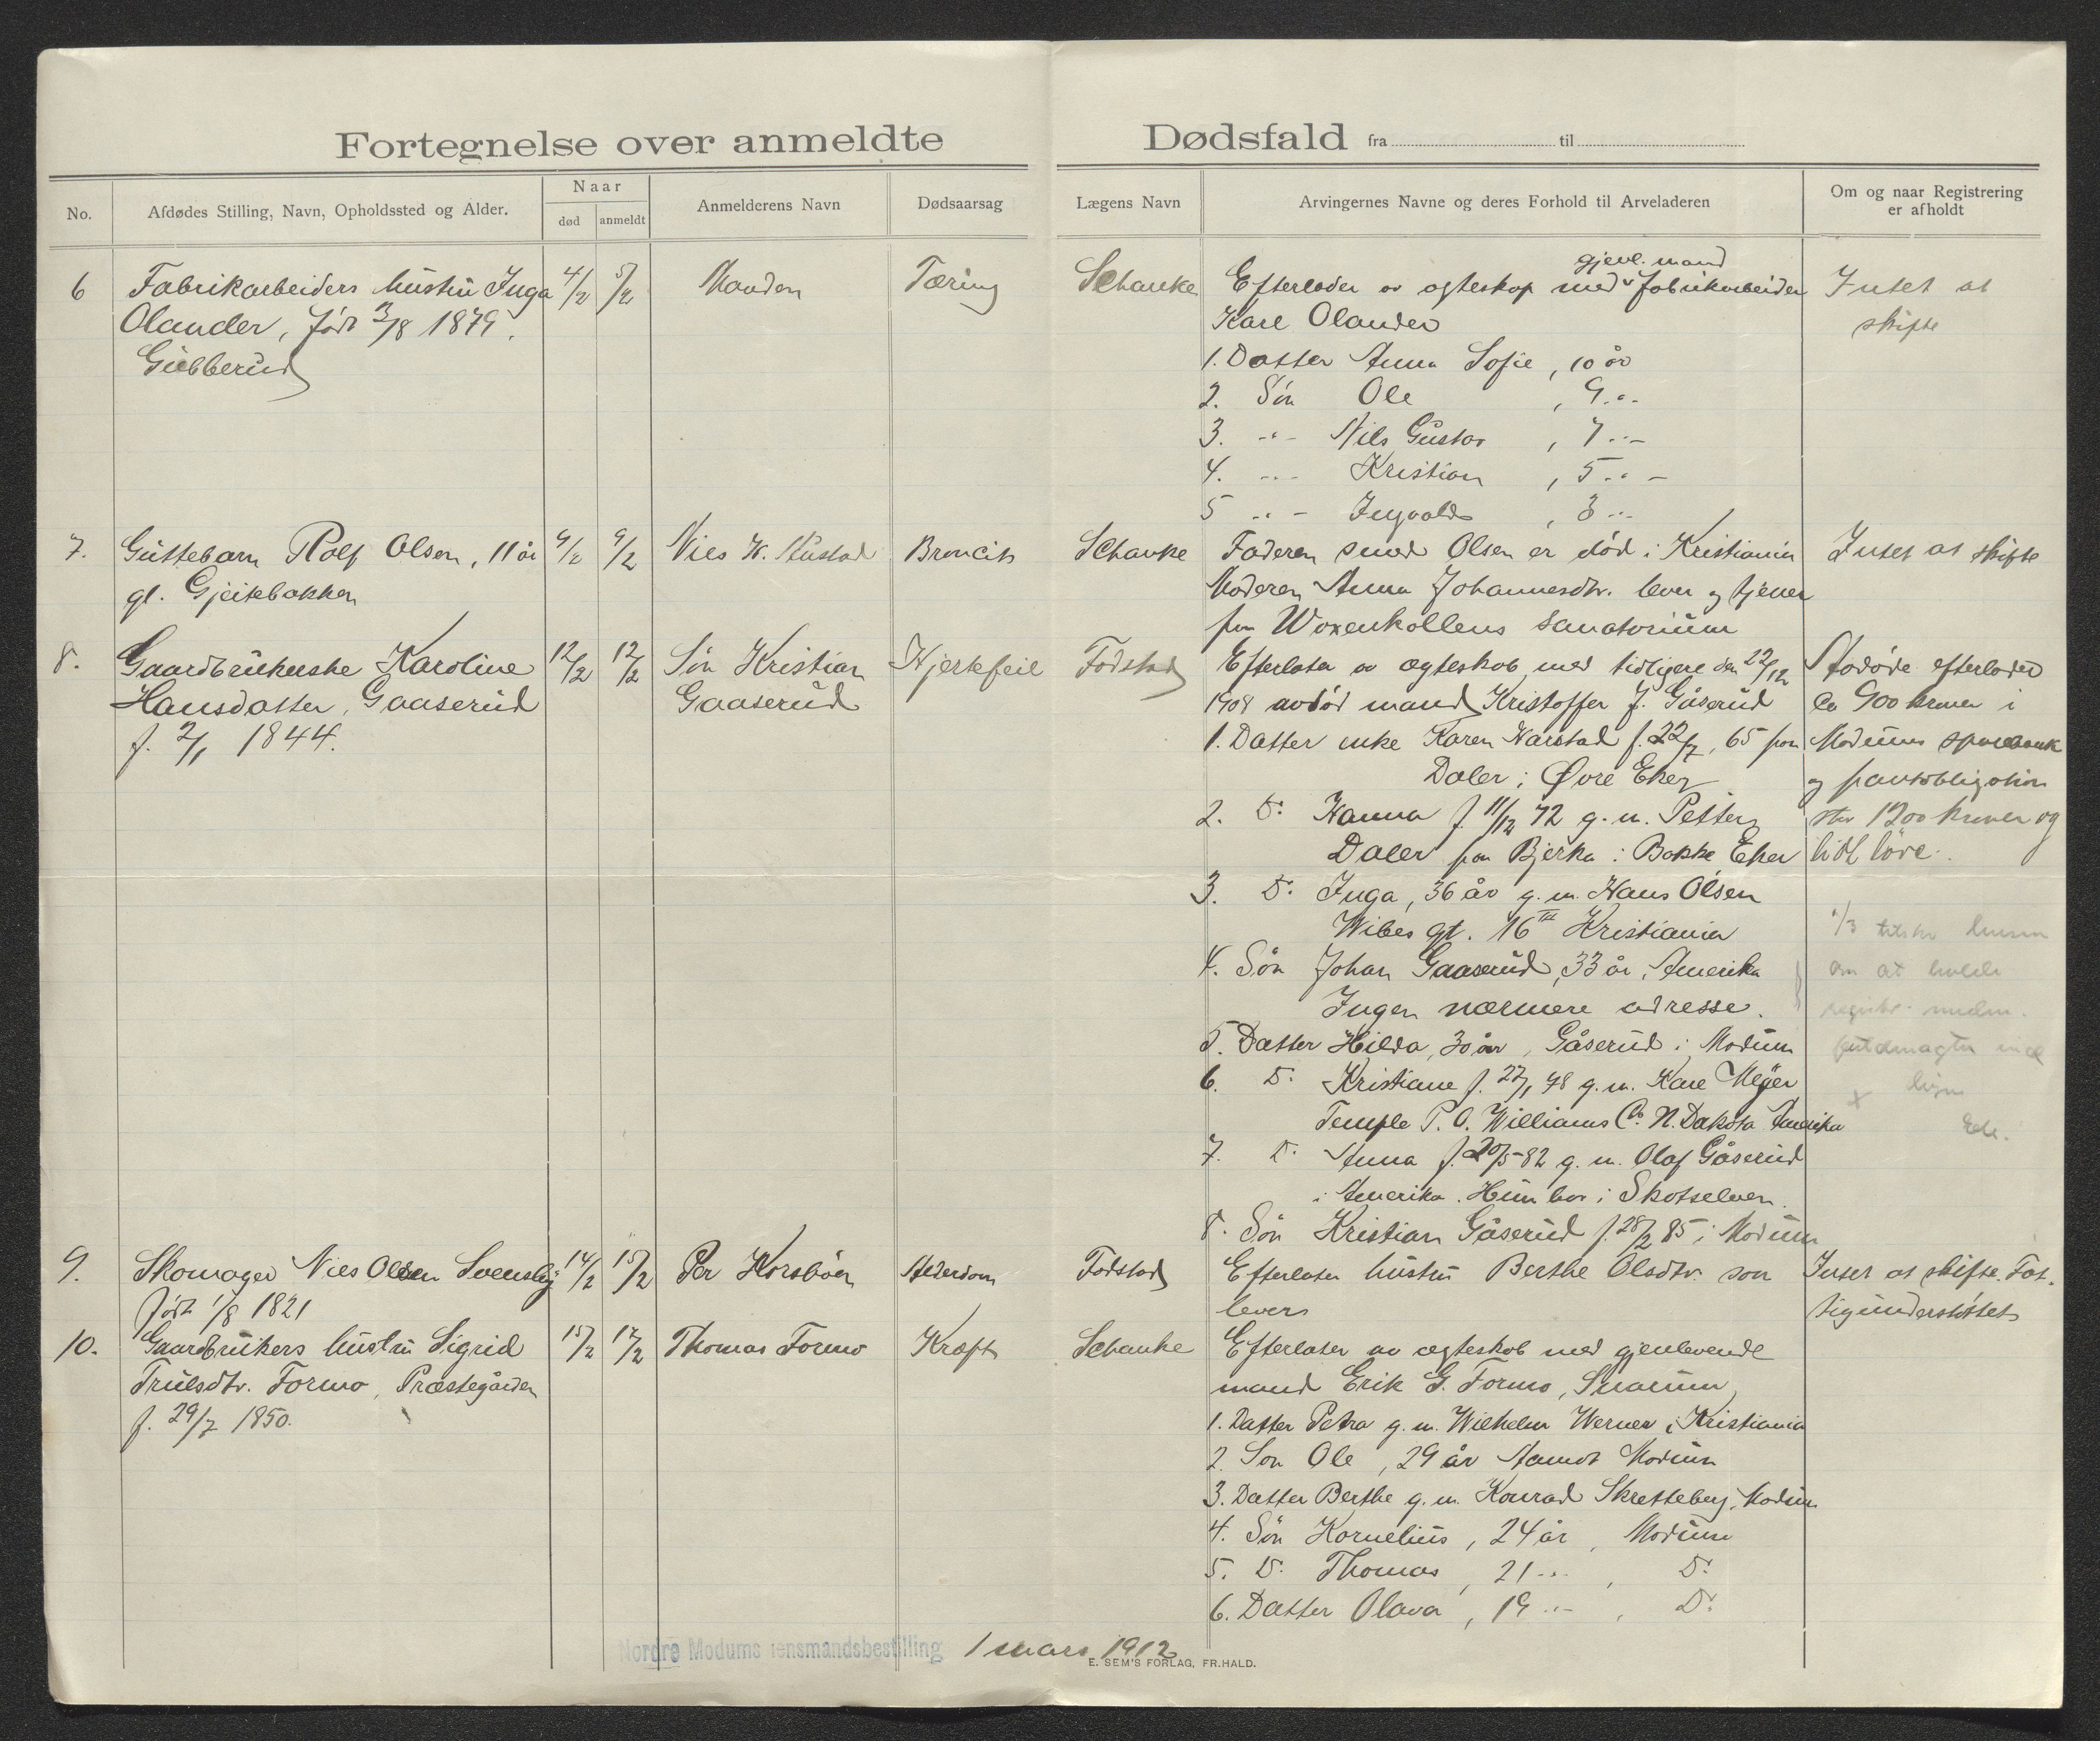 Fortegnelse over anmeldte Dødsfald fra til
No.
Afdødes Stilling, Navn, Opholdssted og Alder.
Naar
død
anmeldt
Anmelderens Navn
Dødsaarsag
Lægens Navn
Arvingernes Navne og deres Forhold til Arveladeren
Om og naar Registrering
er afholdt
6
Fabrikarbeiders hustru Inga
Olander, født 3/8 1879.
Gubberud
4/2
5/2
Manden
Tæring
Schanke
gjenl. mand
Efterlader av egteskap med fabrikarbeider
Karl Olander
1. Datter Anna Sofie, 10 år
2. Søn Ole, 9 "-
3. "- Nils Gustav, 7 "-
4. "- Kristian, 5 "-
5 "- Ingvald, 3 "-
Intet at
skifte
7.
Guttebarn Rolf Olsen, 11 år
gl. Gjeitebakken
9/2
9/2
Nils K. Rustad
Broncit
Schanke
Faderen smed Olsen er død i Kristiania
Moderen Anna Johannesdtr. lever og tjener
paa Woxenkollens Sanatorium
Intet at skifte
8.
Gaardbrukerske Karoline
Hansdatter, Gaaserud
f. 2/1 1844.
12/2
12/2
Søn Kristian
Gaaserud
Hjertefeil
Fodstad
Efterlater av ægteskab med tidligere den 22/12
1908 avdød mand Kristoffer J. Gåserud
1. Datter enke Karen Harstad f. 22/7, 65 paa
Daler i Øvre Eker
2. Do Hanna f. 11/12 72 g. m. Petter
Daler paa Bjerka i Bakke Eker
3. Do Inga, 36 år g. m. Hans Olsen
Wibes gt. 16 III Kristiania
4. Søn Johan Gaaserud, 33 år, Amerika
Ingen nærmere adresse.
5. Datter Hilda, 30 år, Gåserud i Modum
6. Do Kristiane f. 27/1 78 g. m. Karl Meyer
Temple P.O. Williams Co. N. Dakota Amerika
7. Do Anna f. 20/5 82 g. m. Olaf Gåserud
i Amerika. Hun bor i Skotselven.
8. Søn Kristian Gåserud f. 28/2 85 i Modum
Avdøde efterlader
ca 900 kroner i
Modums sparebank
og pantobligation
stor 1200 kroner og
lidt løsøre.
1/3
om at holde
9.
Skomager Nils Olsen Svensby
født 1/8 1821
14/2
15/2
Per Korsbøen
Alderdom
Fodstad
Efterlater hustru Berthe Olsdtr. som
lever
Intet at skifte. Fat-
tigunderstøttet
10.
Gaardbrukers hustru Sigrid
Trulsdtr. Formo, Præstegården
f. 29/7 1850.
15/2
17/2
Thomas Formo
Kræft
Schanke
Efterlater av ægteskab med gjenlevende
mand Erik G. Formo, Snarum
1. Datter Petra g. m. Wilhelm Werner i Kristiania
2. Søn Ole, 29 år Aamot Modum
3. Datter Berthe g. m. Konrad Skretteberg, Modum
4. Søn Kornelius, 24 år, Modum
5. Do Thomas, 21 "-, Do
6. Datter Olava, 19 "-, Do
Nordre Modums lensmandsbestilling 1 mars 1912
E. SEM'S FORLAG, FR.HALD.